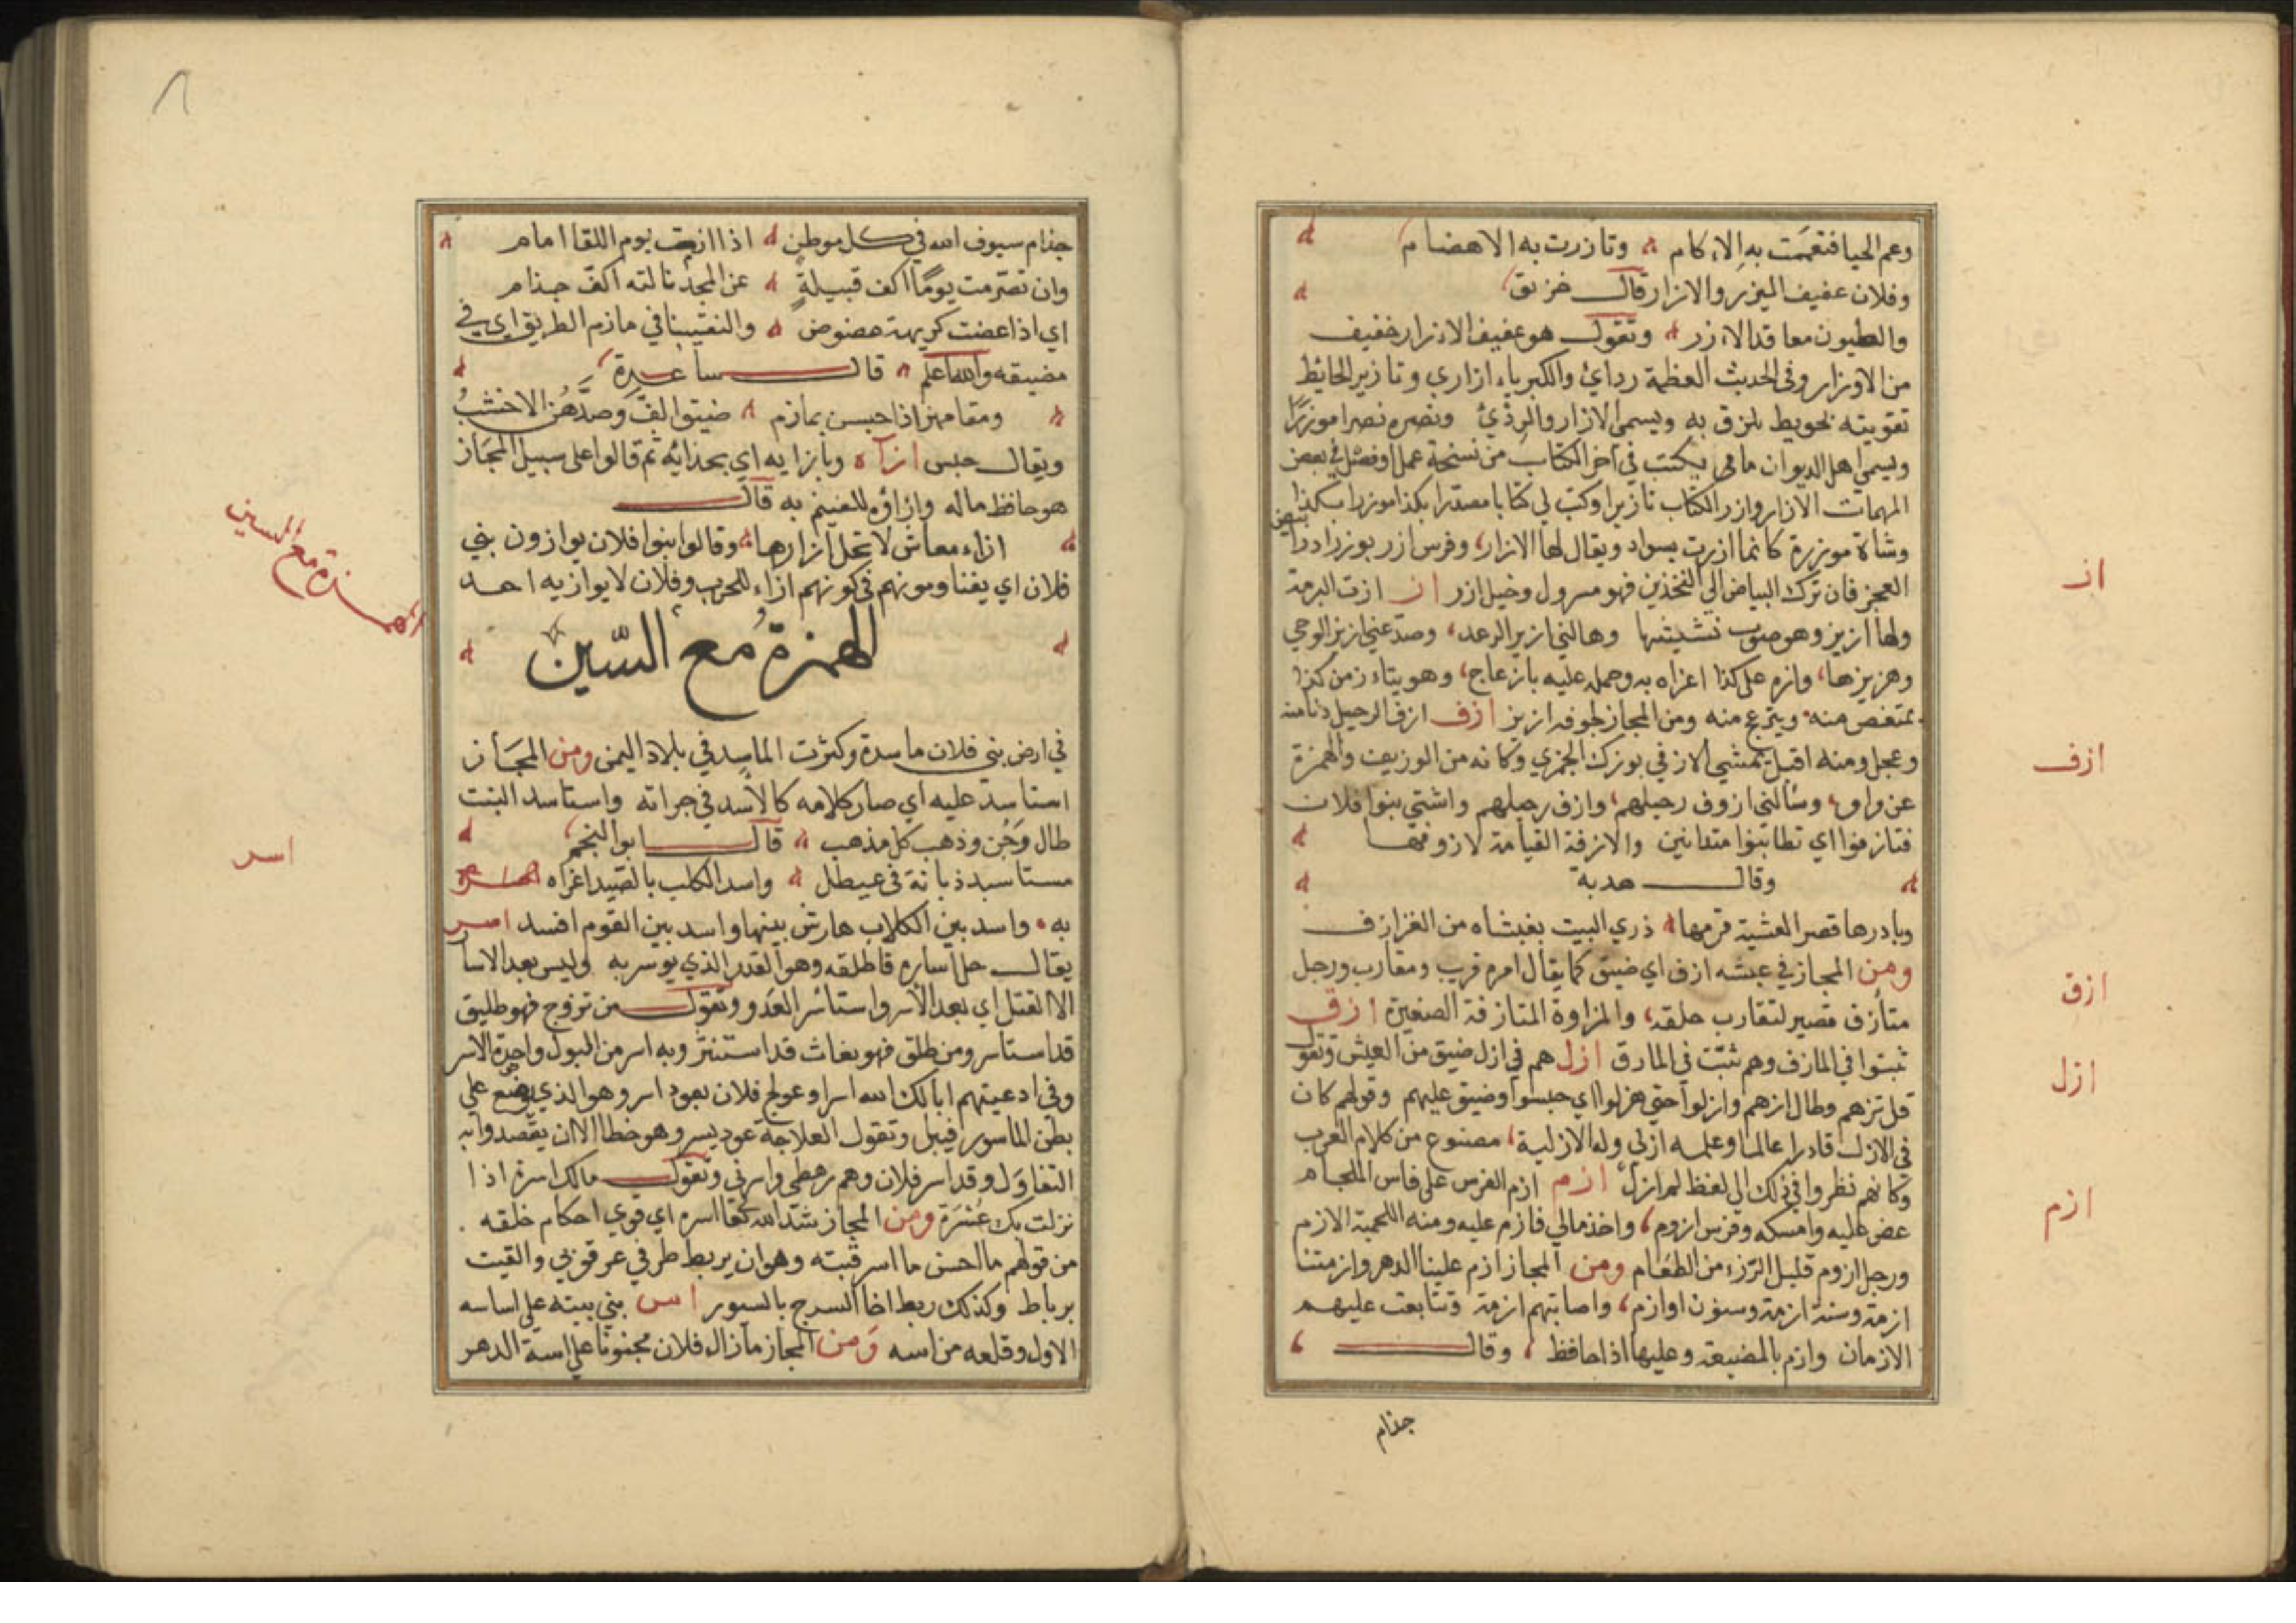 وعم الحيا فتعممت به الاكام وتازرت به الاهضام
وفلان عفيف الميزر والازار قال خزنق
والطيبون معاقد الازر وتقول هو عفيف الازار خفيف
من الاوزار وفي الحديث العظمة ردائ والكبرياء ازاري وتازير الحايط
تقويته بحويط يلزق به ويسمى الازار والردئ ونصره نصرا موزرا
ويسمي اهل الديوان ما يكتب في اخر الكتاب من نسخة عمل او فصل في بعض
المهمات الازار وازر الكتاب تازيرا وكتب لي كتابا مصدرا بكذا موزرا بكذا
وشاة موزرة كانما ازرت بسواد ويقال لها الازار وفرس ازر بوزر ادرا
العجز فان ترك البياض الي الفخذين فهو مسرول وخيل ازر از ازت البرمة
ولها ازيز وهو صوت نشيشها وهالني ازيز الرعد وصدعني ازيز الرحي
وهزيزها وازه علي كذا اغراه به وحمله عليه بازعاج وهو يتاءزز من كذا
يمتعض منه ويتزع منه ومن المجاز لجوفه ازيز ازف ازف الرحيل دنا منه
وعجل ومنه اقبل يمشي الازفي بوزن الجمزي وكانه من الوزيف والهمزة
عن واو وسالني ازوف رحيلهم وازف رحيلهم واشتي بنوا فلان
فتازفوا اي تطانبوا متدانين والازفة القيامة لازوفها
وقال هدبة
وبادرها قصر العشية قرمها ذري البيت يغشاه من القر ازف
ومن المجاز في عيشه ازف اي ضيق كما يقال امره قريب ومقارب ورجل
متازف قصير لتقارب خلقه والمزاوة المتازفة الصغيرة ازق
ثبتوا في المازق وهم ثبت في المازق ازل هم في ازل ضيق من العيش وتقول
قل نزهم وطال ازلهم وازلوا حتي هزلوا اي حبسوا وضيق عليهم وقولهم كان
في الازل قادرا عالما وعلمه ازلي وله الازلية مصنوع من كلام العرب
وكانهم نظروا في ذلك الي لفظ لم ازل ازم ازم الفرس علي فاس اللجام
عض عليه وامسكه وفرس ازوم واخذ مالي فازم عليه ومنه اللحمية الازم
ورجل ازوم قليل الرزء من الطعام ومن المجاز ازم علينا الدهر وازمتنا
ازمة وسنة ازمة وسنون اوازم واصابتهم ازمة وتتابعت عليهم
الازمان وازم بالضيعة وعليها اذا حافظ وقال
جذام
از
ازف
ازق
ازل
ازم
جذام سيوف الله في كل موطن اذا ازمت يوم اللقا امام
وان تصرمت يوما اكف قبيلة عن المجد نالته اكف جذام
اي اذا عضت كريهة عضوض والتقينا في مازم الطريق اي في
مضيقه والله اعلم قال ساعدة
ومقامهن اذا حبسن بمازم ضيق الف وصدهن الاخشب
ويقال جلس ازآه وبازايه اي بحذايه ثم قالوا علي سبيل المجاز
هو حافظ ماله وازاؤه للقيم به قال
ازاء معاش لا تحل ازارها وقالوا بنوا فلان يوازون بني
فلان اي يقاومونهم في كونهم ازاء للحرب وفلان لا يوازيه احد
الهمزة مع السين
في ارض بني فلان ماسدة وكثرت الماسد في بلاد اليمن ومن المجاز
استاسد عليه اي صار كلامه كالاسد في جراته واستاسد النبت
طال وجن وذهب كل مذهب قال ابو النجم
مستاسد ذبانه في عيطل واسد الكلب بالصيد اغراه
به واسد بين الكلاب هارش بينها واسد بين القوم افسد اسر
يقال حل اساره فاطلقه وهو القد الذي يوسر به وليس بعد الاسار
الا القتل اي بعد الاسر واستاسر العدو وتقول من تزوج فهو طليق
قد استاسر ومن طلق فهو بغاث قد استنسر وبه اسر من البول واحدة الاسر
وفي ادعيتهم ابالك الله اسرا وعولج فلان بعود اسر وهو الذي يوضع علي
بطن الماسور فيبل وتقول العلاجة عود يسر وهو خطا الا ان يقصدوا به
التفاؤل وقد اسر فلان وهم رهطي واسرتي وتقول مالك اسرة اذا
نزلت بك عسرة ومن المجاز شد الله تعا اسره اي قوي احكام خلقه
من قولهم ما احسن ما اسر قتبه وهو ان يربط طرفي عرقوبي القتب
برباط وكذلك ربط احنا السرج بالسيور اسس بني بيته علي اساسه
الاول وقلعه من اسه ومن المجاز مازال فلان مجنونا علي است الدهر
الهمزة مع السين
اسر